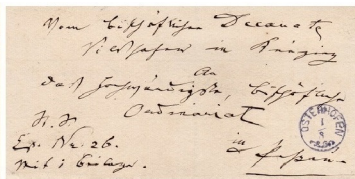 Vom bischöflichen Decanate
Vilshofen in
An
das hochwürdigste, bischöfliche
Ordinariat
in
Passau.
Exp. Nr. 26.
Mit 1 Beilage.
OSTERHOFEN